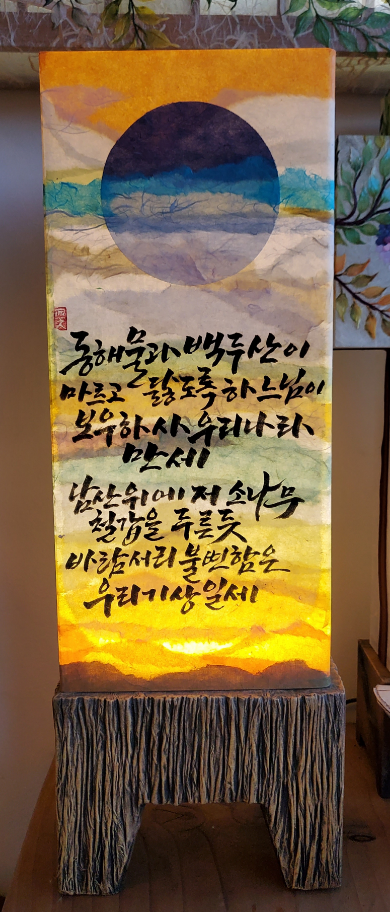 동해물과 백두산이
마르고 닳도록 하느님이
보우하사 우리나라
만세
남산위에 저 소나무
철갑을 푸른듯
바람서리 불변함은
우리기상일세